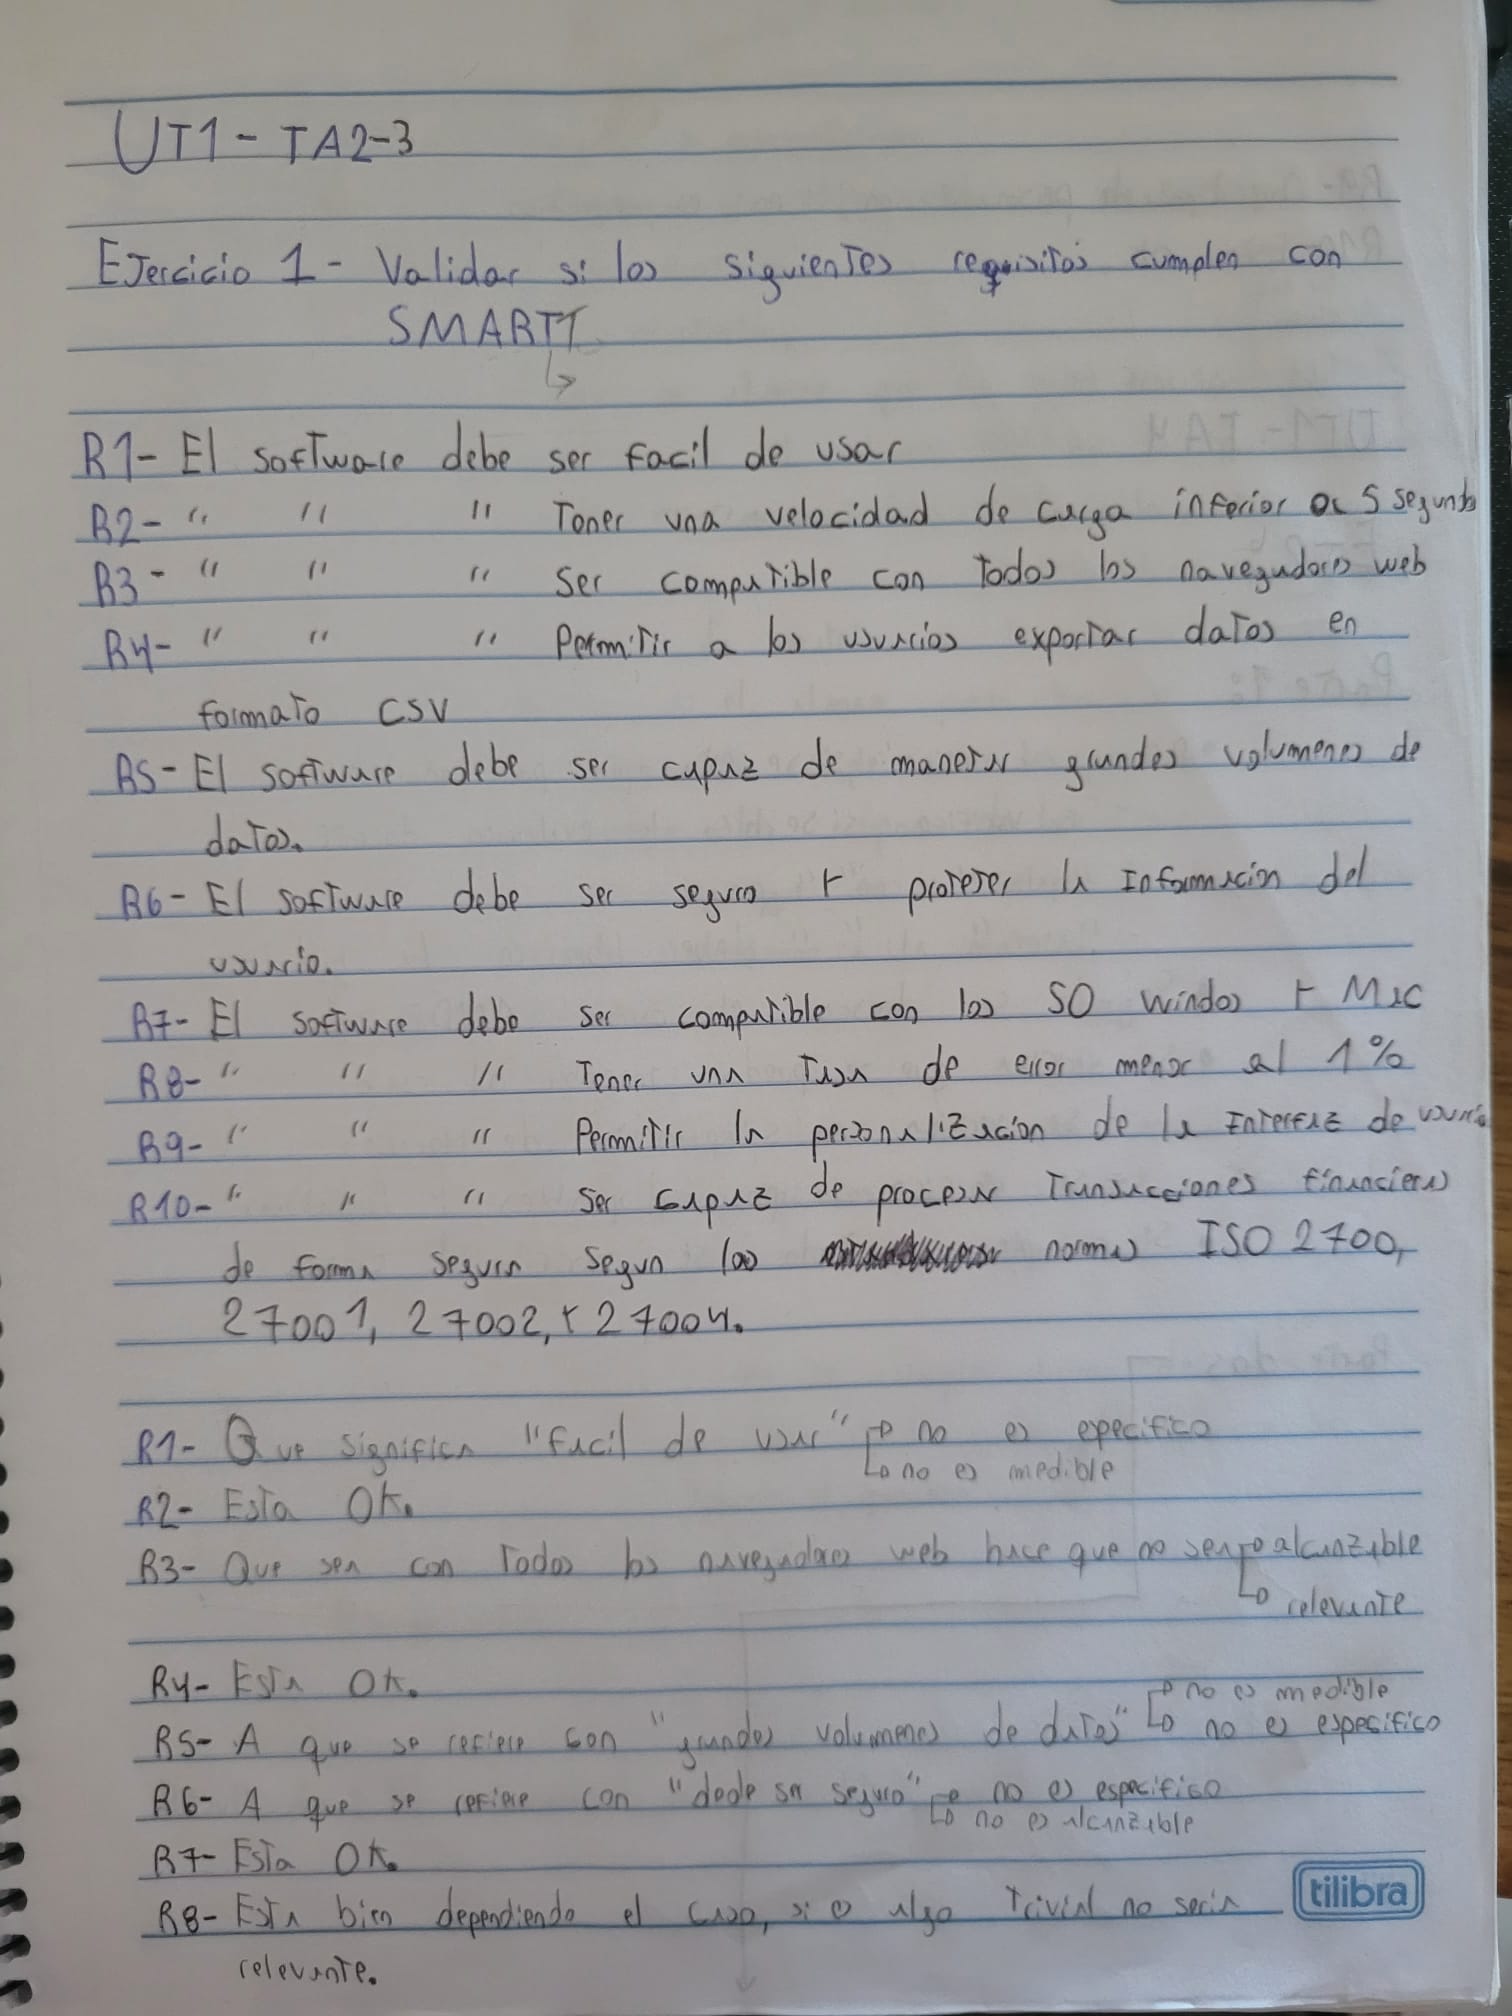 UT1- TA2-3
Ejercicio 1 - Validar si los siguientes requisitos cumplen con
SMARTT
↳
R1- El software debe ser facil de usar
R2- " " " Tener una velocidad de carga inferior a 5 segundos
R3- " " " ser compatible con todos los navegadores web
R4- " " " Permitir a los usuarios exportar datos en
formato CSV
R5- El software debe ser capaz de manejar grandes volumenes de
datos.
R6- El software debe ser seguro y proteger la informacion del
usuario.
R7- El software debe ser compatible con los SO Windos y Mac
R8- " " " Tener una tasa de error menor al 1%
R9- " " " Permitir la personalizacion de la interfaz de usuario
R10- " " " ser capaz de procesar transacciones financieras
de forma segura segun las normas ISO 2700,
27001, 27002, y 27004.
R1- Que significa "facil de usar" ↱ no es epecifico
↳ no es medible
R2- Esta OK.
R3- Que sea con todos los navegadores web hace que no sea ↱ alcanzable
↳ relevante
R4- Esta OK.
R5- A que se refiere con "grandes volumenes de datos" ↱ no es medible
↳ no es especifico
R6- A que se refiere con "dede ser seguro" ↱ no es especifico
↳ no es alcanzable
R7- Esta OK.
R8- Esta bien dependiendo el caso, si es algo trivial no seria
relevante.
tilibra